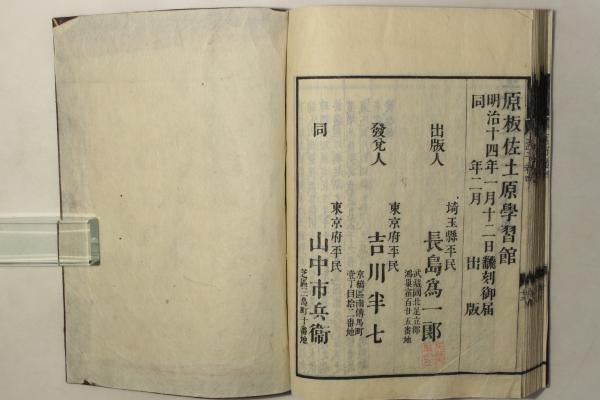 原板佐土原學習館
明治十四年一月十二日飜刻御届
同 年二月 出版
出版人
埼玉縣平民
長島爲一郎
武蔵國北足立郡
鴻巣宿百廿五番地
發兌人
東京府平民
吉川半七
京橋區南傳馬町
壹丁目拾二番地
同
東京府平民
山中市兵衞
芝區三島町十番地